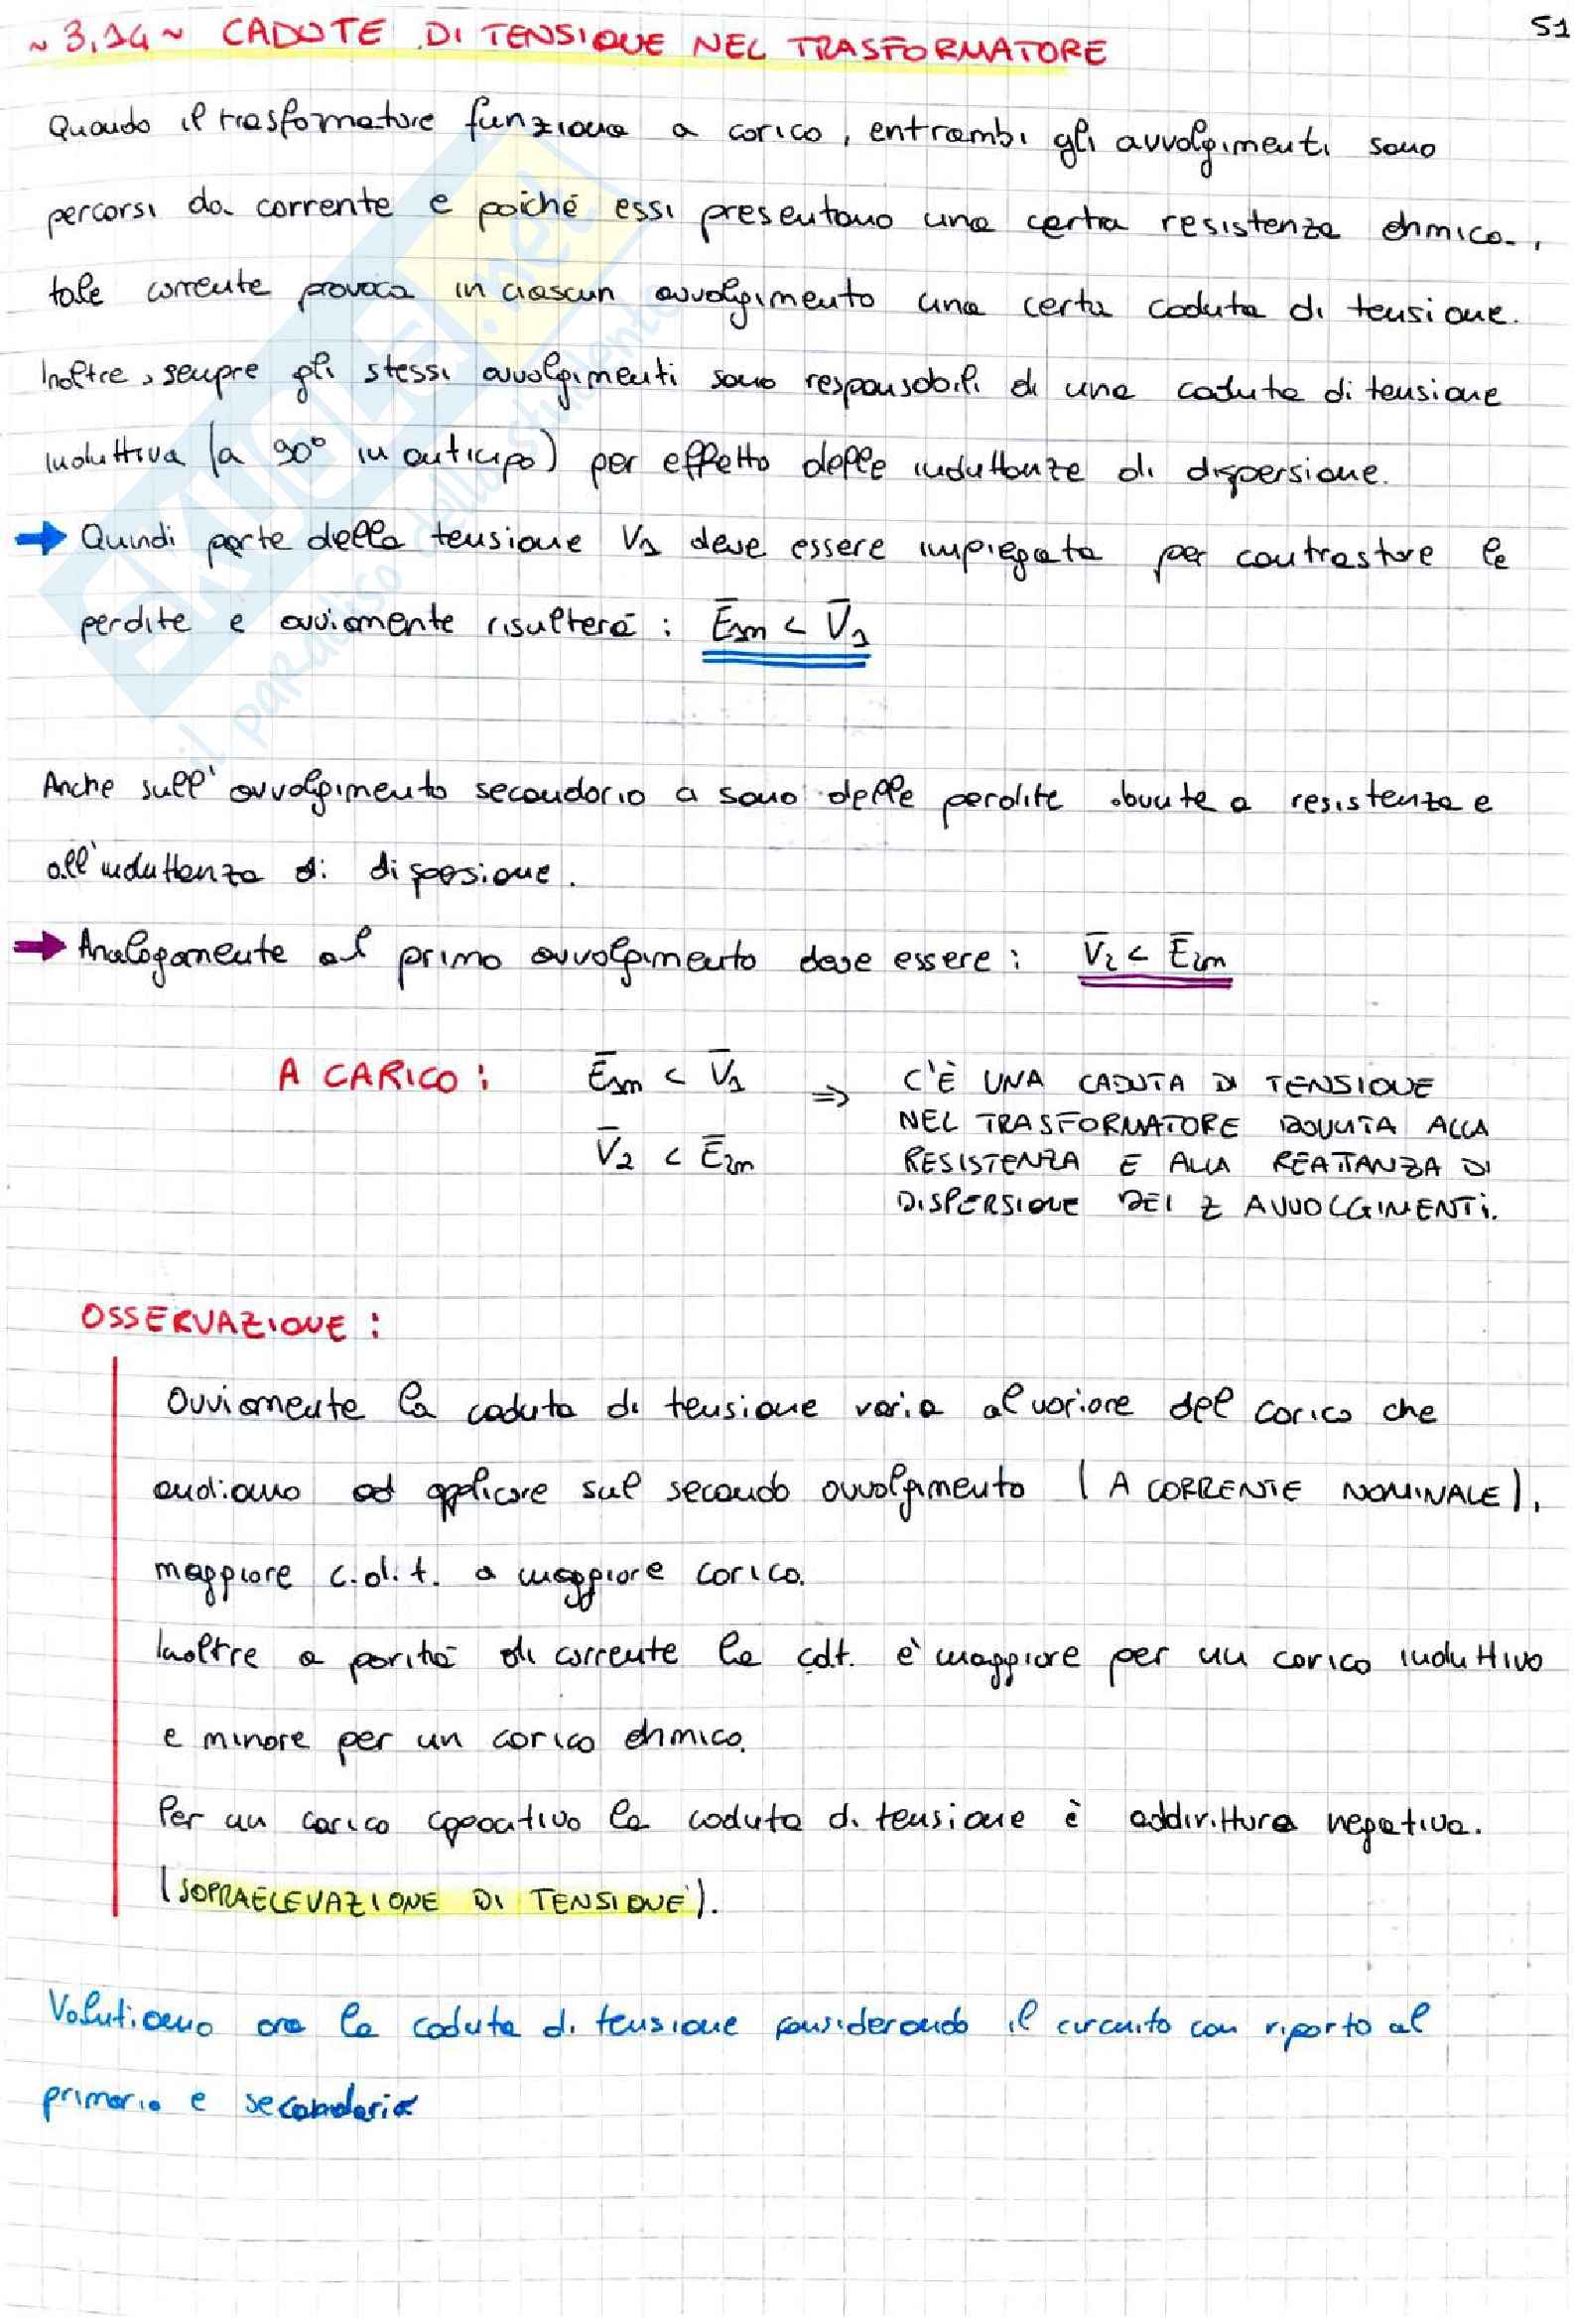 51
~ 3.14 ~ CADUTE DI TENSIONE NEL TRASFORMATORE
Quando il trasformatore funziona a carico, entrambi gli avvolgimenti sono
percorsi da corrente e poiché essi presentano una certa resistenza ohmica,
tale corrente provoca in ciascun avvolgimento una certa caduta di tensione.
Inoltre, sempre gli stessi avvolgimenti sono responsabili di una caduta di tensione
induttiva (a 90° in anticipo) per effetto delle induttanze di dispersione.
→ Quindi parte della tensione V1 deve essere impiegata per contrastare le
perdite e ovviamente risulterà : E̅1m < V̅1
Anche sull'avvolgimento secondario ci sono delle perdite dovute a resistenza e
all'induttanza di dispersione.
→ Analogamente al primo avvolgimento deve essere : V̅2 < E̅2m
A CARICO : E̅1m < V̅1 ⇒ C'È UNA CADUTA DI TENSIONE
NEL TRASFORMATORE DOVUTA ALLA
V̅2 < E̅2m RESISTENZA E ALLA REATTANZA DI
DISPERSIONE DEI 2 AVVOLGIMENTI.
OSSERVAZIONE :
Ovviamente la caduta di tensione varia al variare del carico che
andiamo ad applicare sul secondo avvolgimento (A CORRENTE NOMINALE),
maggiore c.d.t. a maggiore carico.
Inoltre a parità di corrente la cdt. è maggiore per un carico induttivo
e minore per un carico ohmico.
Per un carico capacitivo la caduta di tensione è addirittura negativa.
(SOPRAELEVAZIONE DI TENSIONE).
Valutiamo ora la caduta di tensione considerando il circuito con riporto al
primario e secondario
SKUOLA.net
il paradiso dello studente